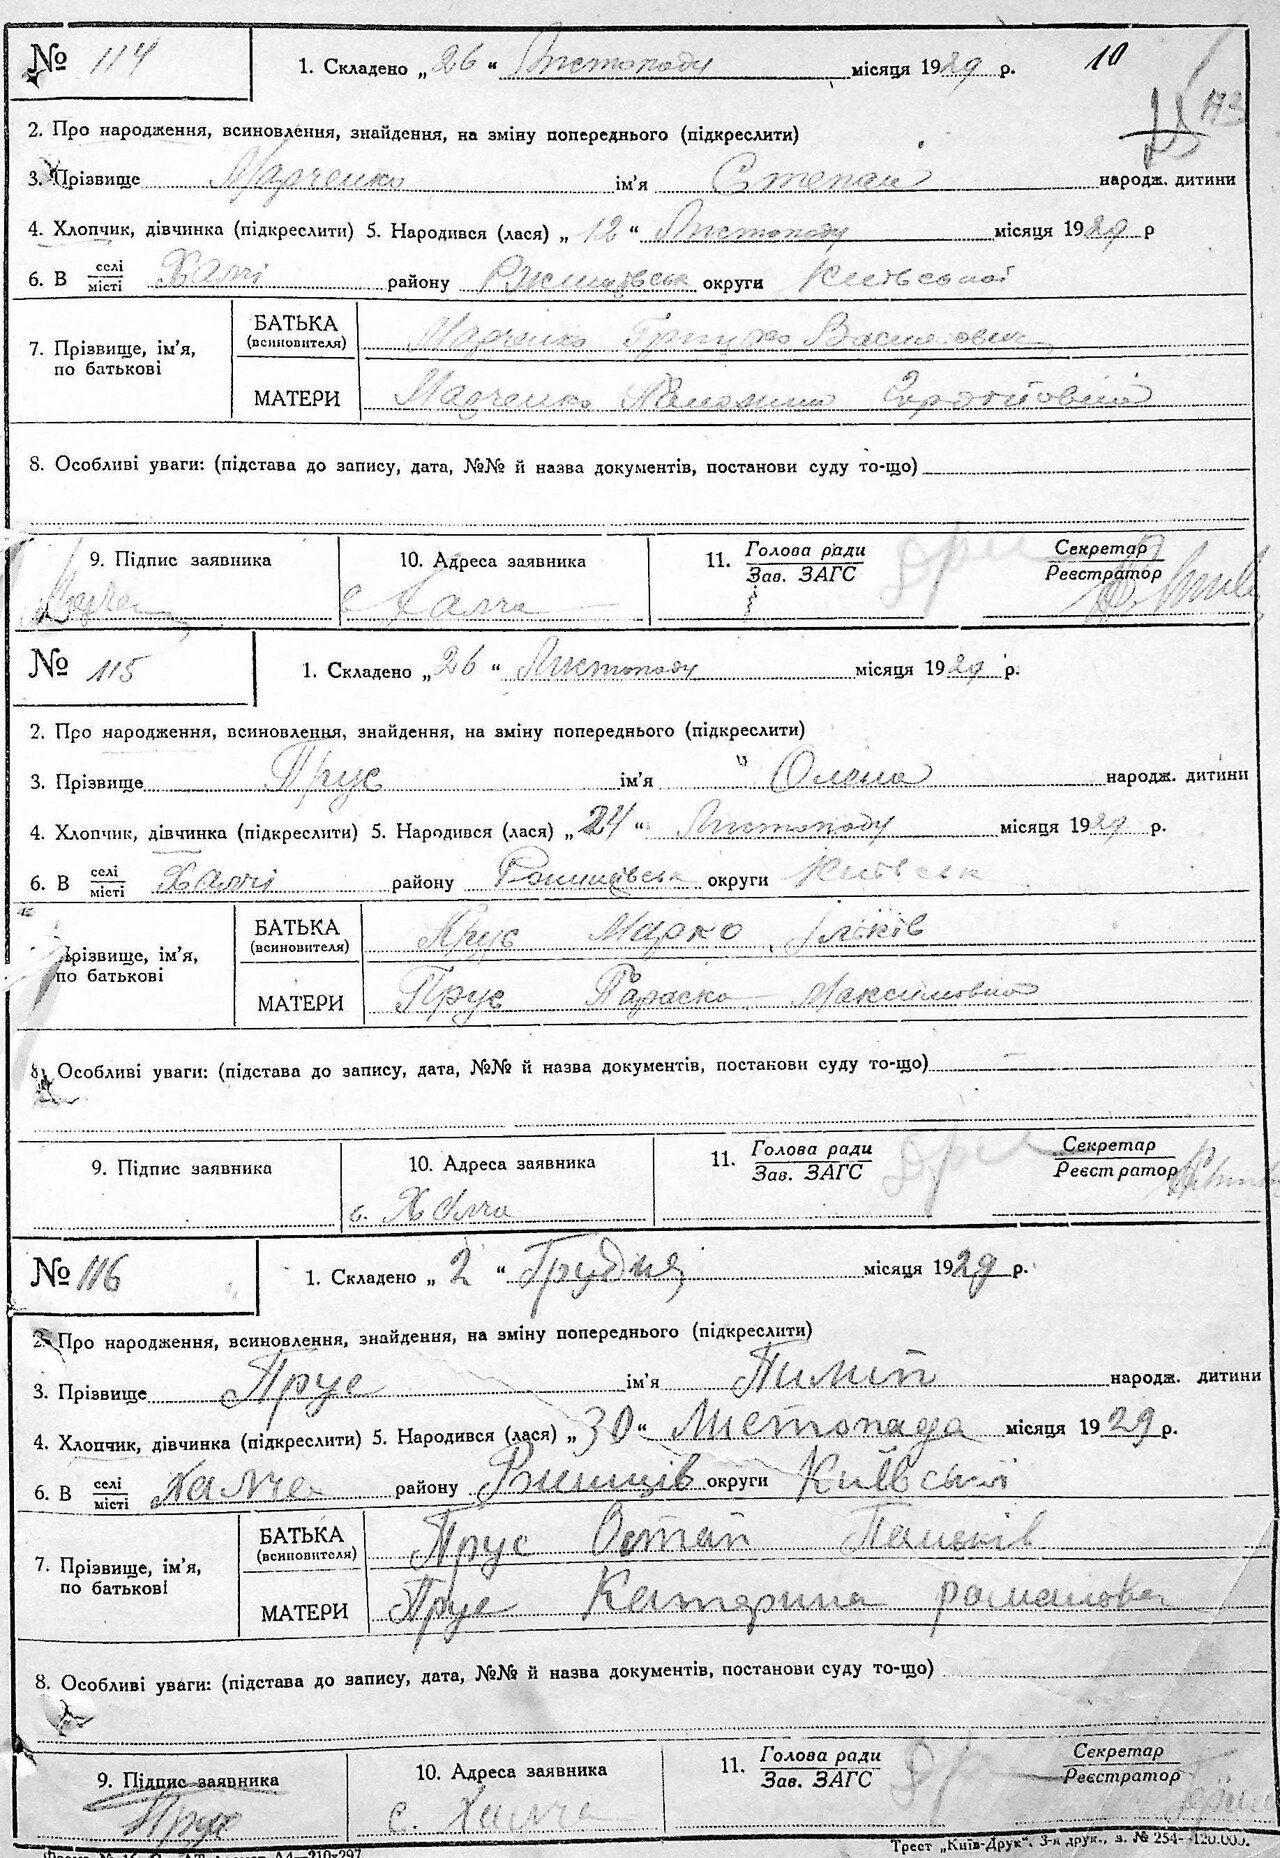 № 114 1. Складено „26“ Листопаду місяця 1929 р. 10
2. Про народження, всиновлення, знайдення, на зміну попереднього (підкреслити) 113
3. Прізвище Марченко ім'я Степан народж. дитини
4. Хлопчик, дівчинка (підкреслити) 5. Народився (лася) „12“ Листопаду місяця 1929 р
6. В селі/місті Халчі району Ржищівськ округи Київської
7. Прізвище, ім'я, по батькові
БАТЬКА (всиновителя) Марченко Грицько Василович
МАТЕРИ Марченко
8. Особливі уваги: (підстава до запису, дата, №№ й назва документів, постанови суду то-що)
9. Підпис заявника 10. Адреса заявника 11. Голова ради/Зав. ЗАГС Секретар/Реєстратор
с. Халча
№ 115 1. Складено „26“ Листопаду місяця 1929 р.
2. Про народження, всиновлення, знайдення, на зміну попереднього (підкреслити)
3. Прізвище Прус ім'я Олена народж. дитини
4. Хлопчик, дівчинка (підкреслити) 5. Народився (лася) „24“ Листопаду місяця 1929 р.
6. В селі/місті Халчі району округи Київськ
Прізвище, ім'я, по батькові
БАТЬКА (всиновителя) Прус Марко Яьків
МАТЕРИ Прус Параска Максимовна
8. Особливі уваги: (підстава до запису, дата, №№ й назва документів, постанови суду то-що)
9. Підпис заявника 10. Адреса заявника 11. Голова ради/Зав. ЗАГС Секретар/Реєстратор
с. Халча
№ 116 1. Складено „2“ Грудня місяця 1929 р.
2. Про народження, всиновлення, знайдення, на зміну попереднього (підкреслити)
3. Прізвище Прус ім'я Пилип народж. дитини
4. Хлопчик, дівчинка (підкреслити) 5. Народився (лася) „30“ Листопада місяця 1929 р.
6. В селі/місті Халча району округи Київської
7. Прізвище, ім'я, по батькові
БАТЬКА (всиновителя) Прус Остап Паньків
МАТЕРИ Прус Катерина Романовна
8. Особливі уваги: (підстава до запису, дата, №№ й назва документів, постанови суду то-що)
9. Підпис заявника 10. Адреса заявника 11. Голова ради/Зав. ЗАГС Секретар/Реєстратор
Прус с. Халча
Трест „Київ-Друк“. 3-я друк., з. № 254—120.000.